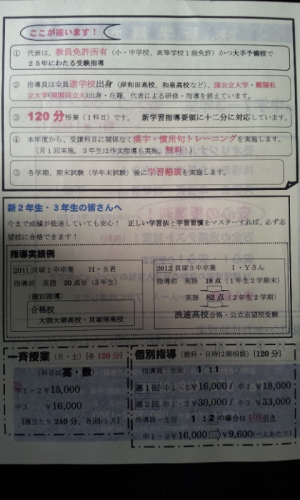 ここが違います!
① 代表は、教員免許所有(小・中学校、高等学校1級免許)かつ大手予備校で
25年にわたる受験指導
② 指導員は全員進学校出身(岸和田高校、和泉高校など)、国公立大学・難関私
立大学(関関同立大)出身・在籍、代表による研修・指導を終えています。
③ 120分授業(1科目)です。新学習指導要領に十二分に対応しています。
④ 本年度から、受講科目に関係なく漢字・慣用句トレーニングを実施します。
(月1回実施、3年生は作文指導も実施。無料)
⑤ 各学期、期末試験(学年末試験)後に学習懇談を実施します。
新2年生・3年生の皆さんへ
今まで成績が低迷していても安心! 正しい学習法と学習習慣をマスターすれば、必ず志
望校に合格できます!
指導実績例
2011貝塚1中卒業 H・S君
指導前 英語 20点台(3年生)
[個別指導]
合格校
大阪大塚高校・貝塚南高校
2012貝塚3中卒業 I・Yさん
指導前 英語 18点(1年生2学期末)
英語 82点(2年生2学期)
浪速高校合格・公立志望校受験
一斉授業(月-土)[各120分]
英・数
中1・2 ¥15,000
中3 ¥16,000
[週当たり240分、8回/1月]
個別指導(教科・日時は御相談)[120分]
指導員:生徒 1:1
週1回 中1・2 ¥16,000/中3 ¥18,000
週2回 中1・2 ¥30,000/中3 ¥33,000
指導員:生徒 1:2の場合は40%引き
中1・2 ¥16,000 ¥9,600(一人あたり)